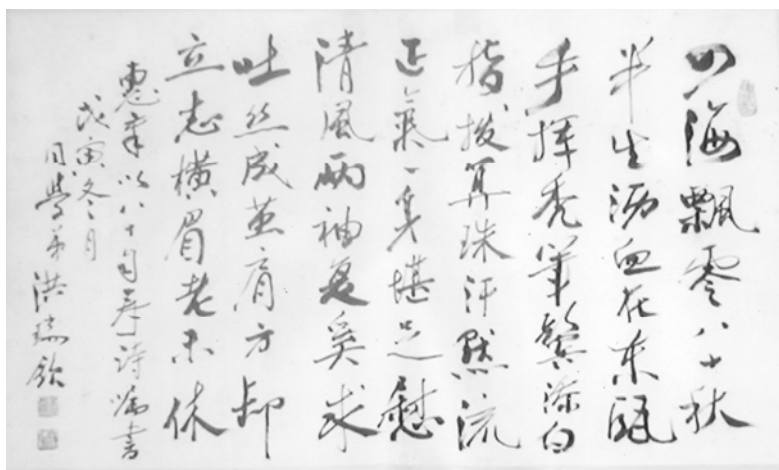 四海飘零八十秋
半生沥血在东瓯
手挥秃笔鬓添白
指拨算珠汗默流
正氣一身堪足慰
清風兩袖复奚求
吐丝成茧肩方卸
立志横眉老不休
惠年以八十自寿诗嘱書
戊寅冬月
同學弟洪瑞欽